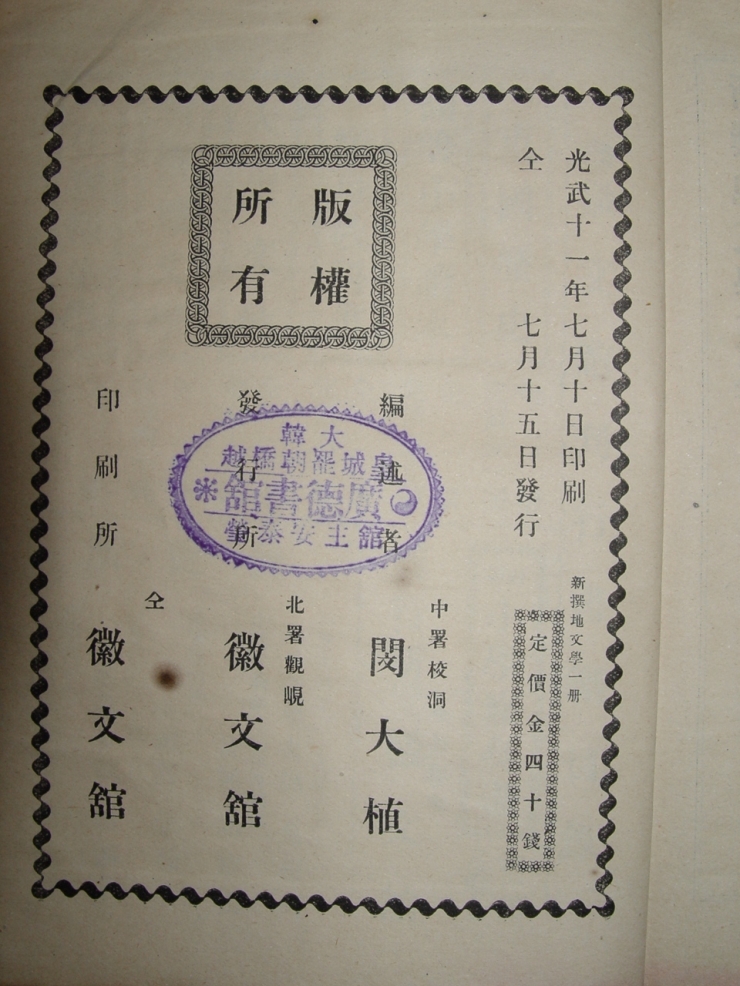 光武十一年七月十日印刷
仝 七月十五日發行
新撰地文學一册
定價金四十錢
版權
所有
編述者
中署校洞
閔大植
發行所
北署觀峴
徽文舘
印刷所
仝
徽文舘
大韓
皇城罷朝橋越
廣德書舘
舘主安泰瑩